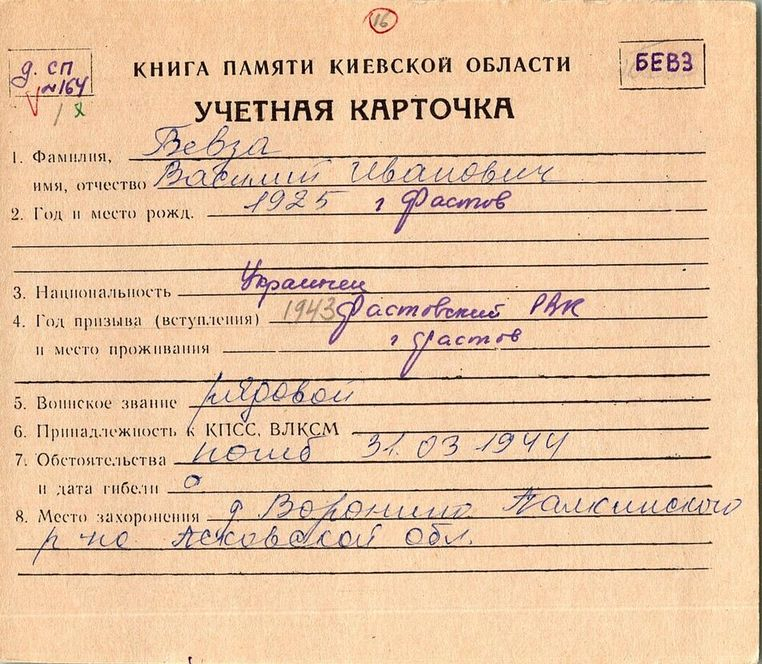 16
д. СП
№164
1
КНИГА ПАМЯТИ КИЕВСКОЙ ОБЛАСТИ
БЕВЗ
УЧЕТНАЯ КАРТОЧКА
1. Фамилия, Бевза
имя, отчество Василий Иванович
2. Год и место рожд. 1925 г Фастов
3. Национальность Украинец
4. Год призыва (вступления) 1943 Фастовский РВК
и место проживания г Фастов
5. Воинское звание рядовой
6. Принадлежность к КПСС, ВЛКСМ
7. Обстоятельства погиб 31.03 1944
и дата гибели
8. Место захоронения д Воронино Палкинского
р-на Псковской обл.